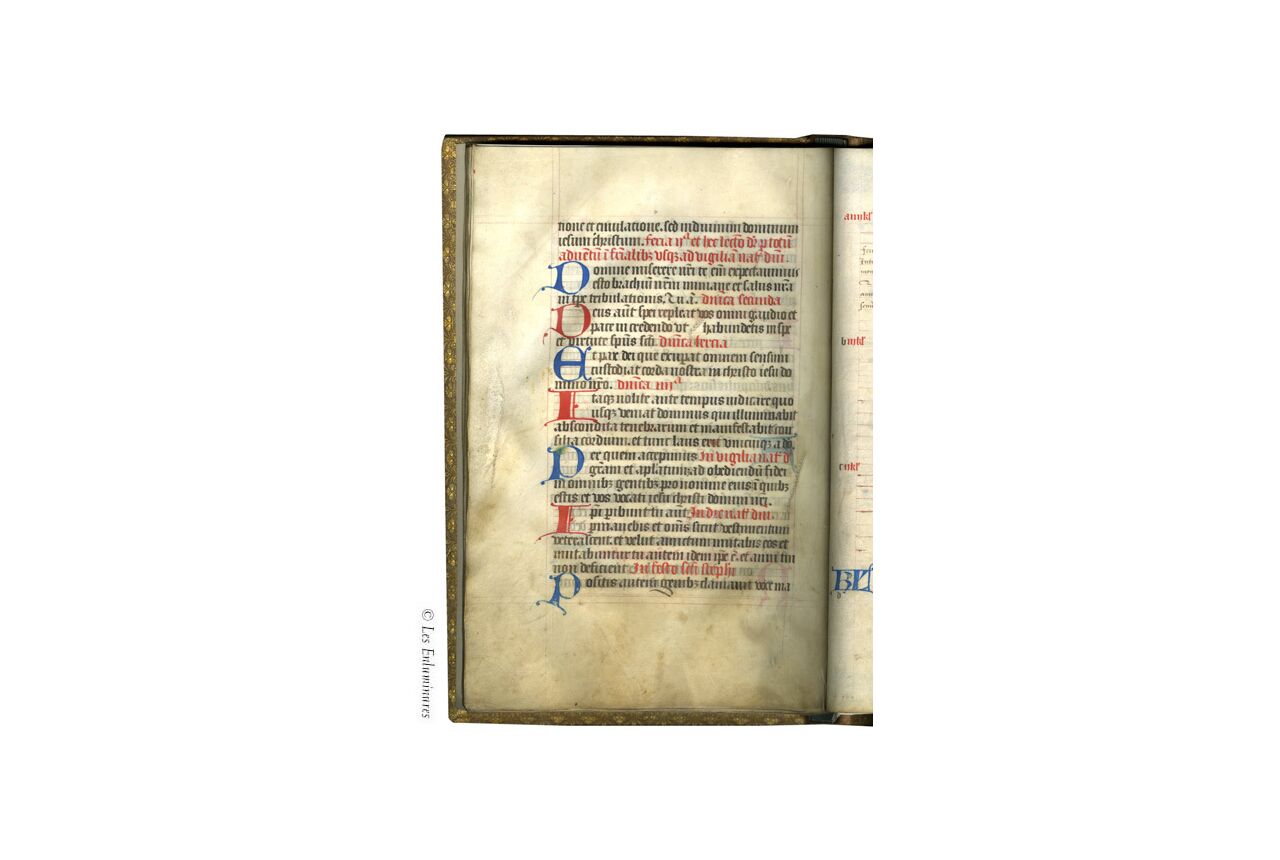 tione et emulatione. sed induimini dominum
iesum christum. feria ii^a et hec lectio dr p totū
aduētū ī feriałibȝ vsqȝ ad vigiliā nat̃ dn̄i.
Domine miserere nr̄i te em̄ expectauimus
esto brachiū nr̄m in mane et salus nr̄a
in tp̄e tribulationis. Tu a. dn̄ica secunda
Deus aūt spei repleat vos omni gaudio et
pace in credendo vt habundetis in spe
et virtute sp̄us sc̄i. dn̄ica tercia
Et pax dei que exupat omnem sensum
custodiat corda vostra in christo iesu do
mino nr̄o. dn̄ica iiii^a
Itaqȝ nolite ante tempus iudicare quo
usqȝ veniat dominus qui illuminabit
abscondita tenebrarum et manifestabit con
silia cordium. et tunc laus erit vnicuiqȝ a do.
Per quem accepimus In vigilia nat̃ d
gr̄am et apl̄atum ad obediendū fidei
in omnibȝ gentibȝ pro nomine eius ī quibȝ
estis et vos vocati iesu christi domini nr̄i.
Ip̄i p̱ibunt tu aūt In die nat̃ dn̄i
p̱manebis et om̄s sicut vestimentum
veterascent. et velut amictum mutabis eos et
mutabuntur tu autem idem ip̄e es et anni tui
non deficient. In festo sc̄i steph̄i
Positis autem genibȝ clamauit voce ma
© Les Enluminures